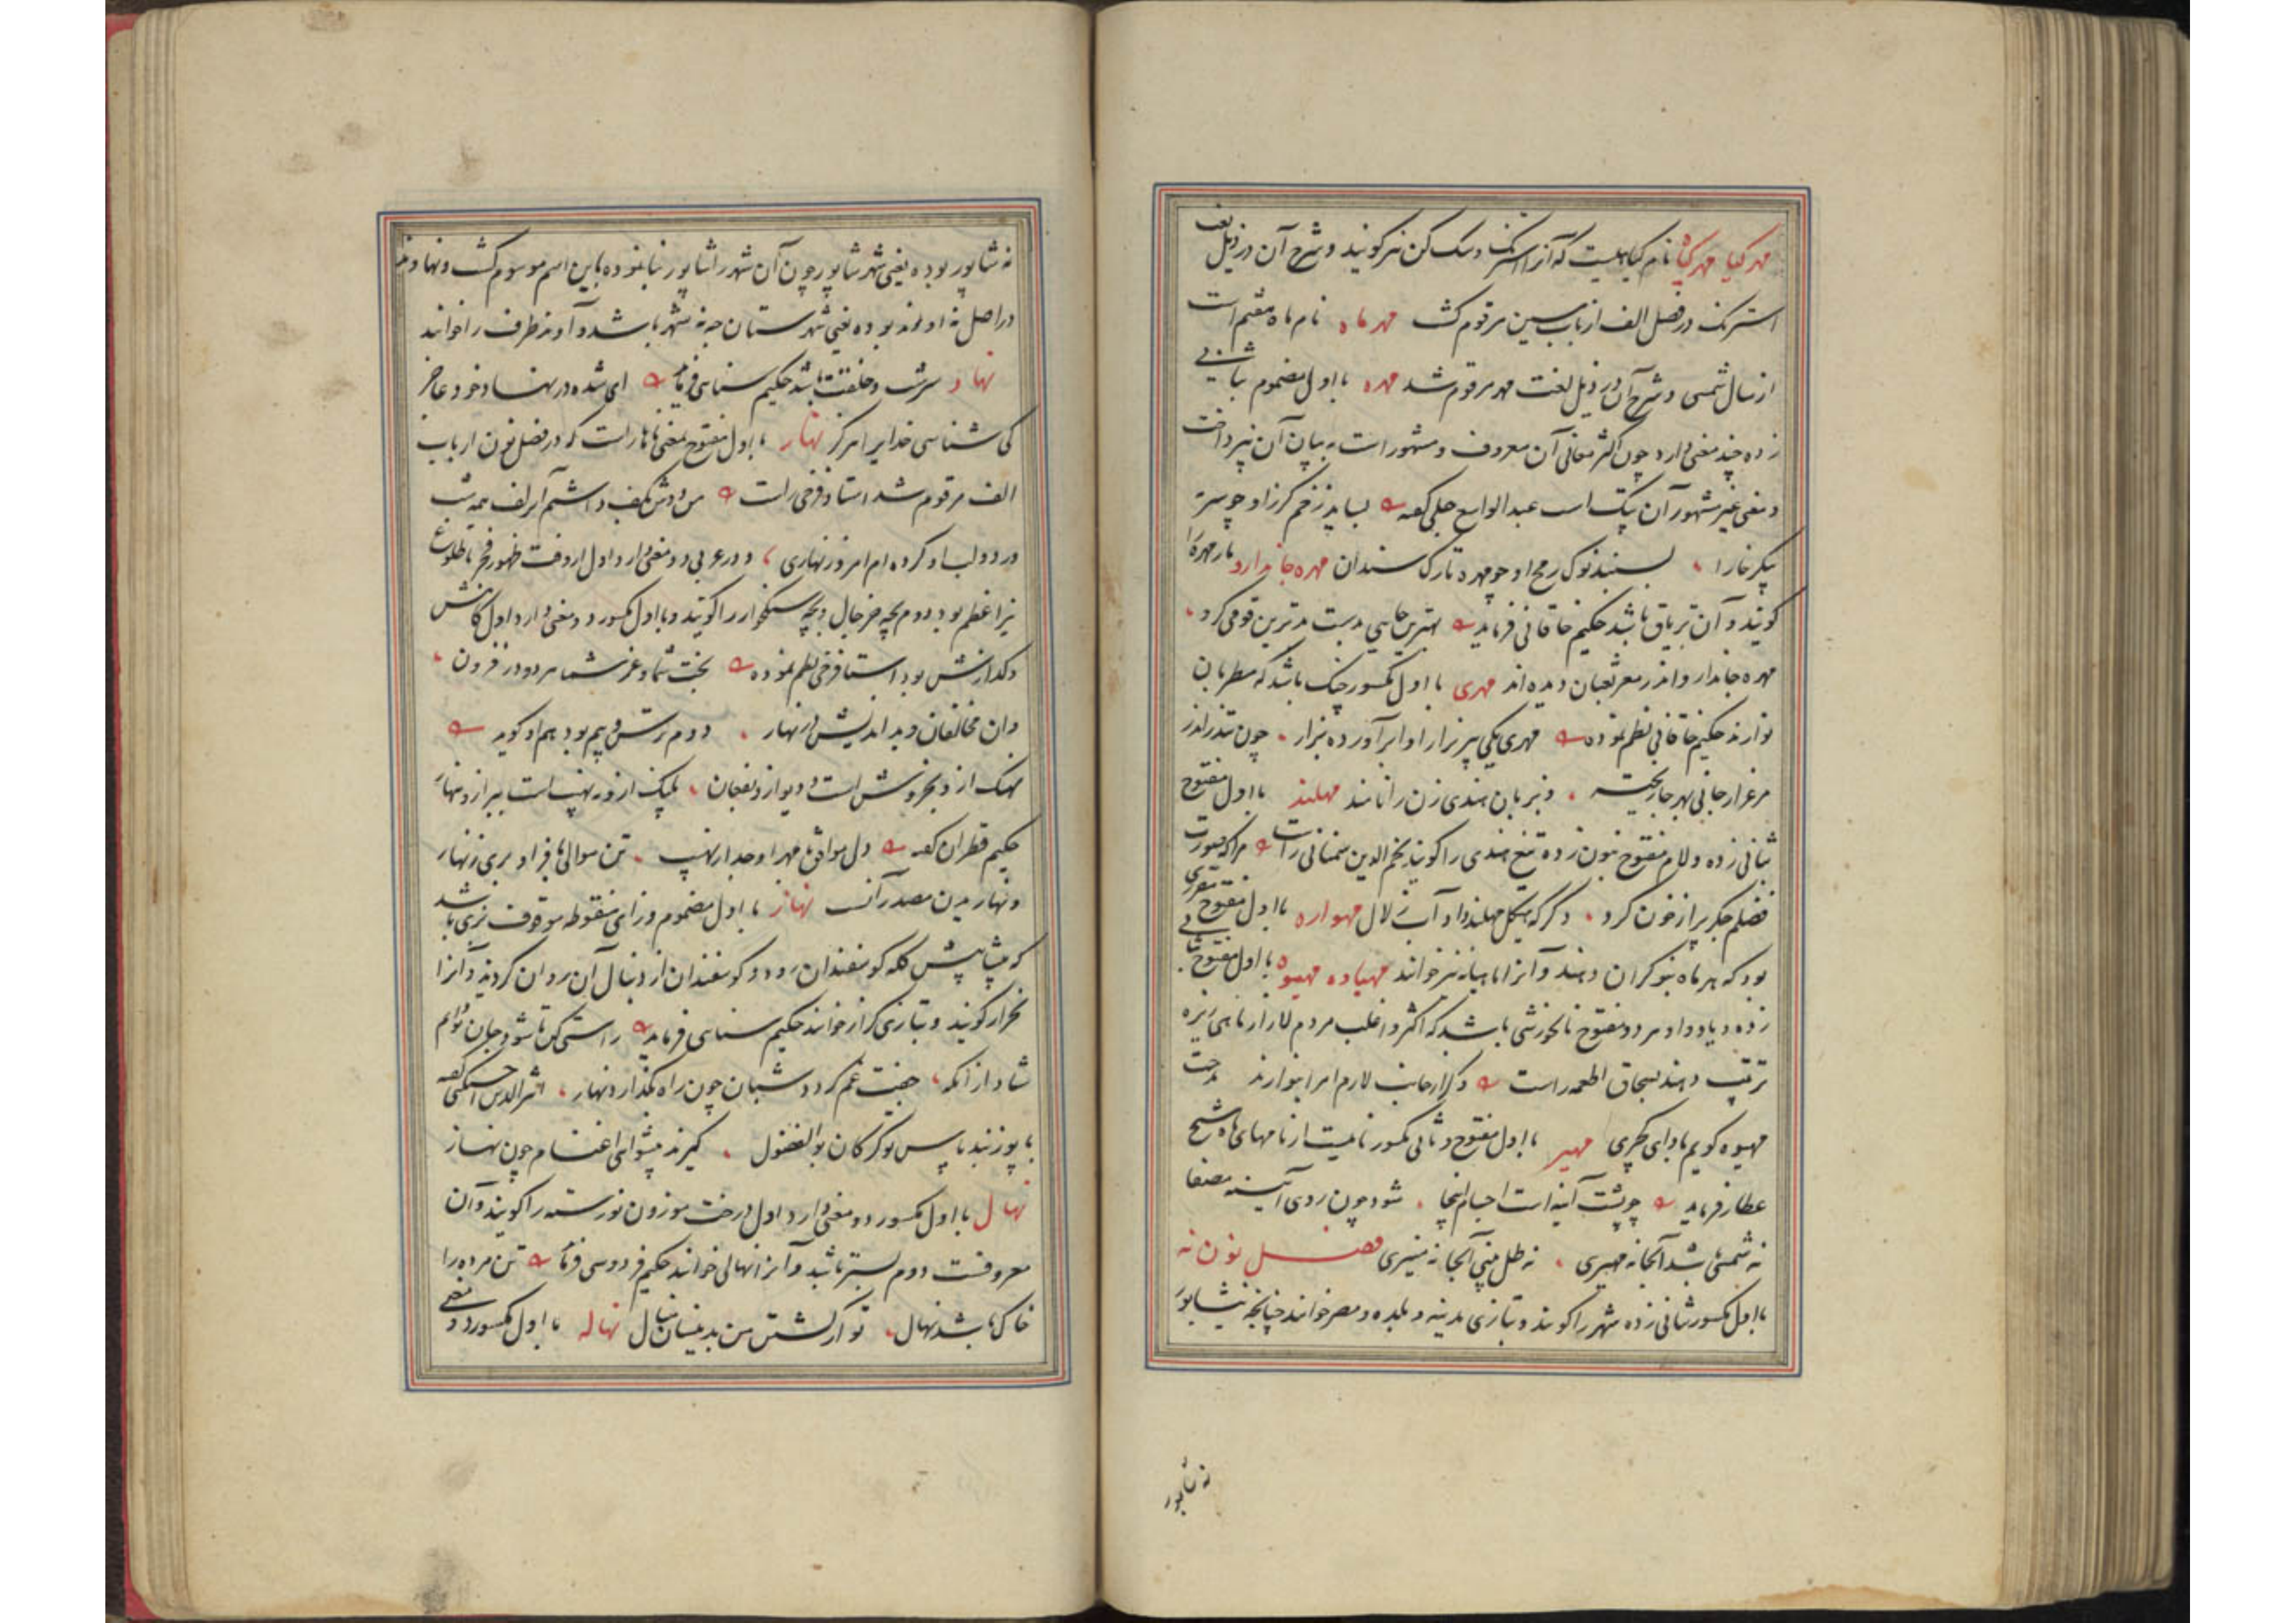 مهر گیا مهر گیاه نام گیاهیست که آنرا استرنگ و سگ کن نیز گویند و شرح آن در ذیل لغت
استرنگ در فصل الف از باب سین مرقوم گشت مهر ماه نام ماه هفتم است
از سال شمسی و شرح آن در ذیل لغت مهر مرقوم شد مهره با اول مضموم بثانی
زده چند معنی دارد چون اکثر معانی آن معروف و مشهور است به بیان آن نپرداخت
و معنی غیر مشهور آن پتک است عبد الواسع جبلی گفته بساید زخم گرز او چو سرمه
پیکر خارا بسنبد نوک رمح او چو مهره تارک سندان مهره جاندارو مار مهره را
گویند و آن تریاق باشد حکیم خاقانی فرماید بهترین جایی بدست بدترین قومی گرو
مهره جاندارو اندر مغز ثعبان دیده اند مهری با اول مکسور چنگ باشد که مطربان
نوازند حکیم خاقانی نظم نموده مهری یکی پیر نزار آوا برآورده بزار چون تندر اندر
مرغزار جانی بهر جا ریخته و بزبان هندی زن را نامند مهلند با اول مفتوح
بثانی زده و لام مفتوح بنون زده تیغ هندی را گویند نجم الدین سمنانی راست مرا که صورت
فضلم جگر پر از خون کرد دگر که هیکل مهلند داد آب زلال مهواره با اول مفتوح مقرری
بود که هر ماه بنوکران دهند و آنرا ماهیانه نیز خوانند مهیاوه مهیوه با اول مفتوح بثانی
زده و یا و واو هر دو مفتوح نانخورشی باشد که اکثر و اغلب مردم لار از ماهی ریزه
ترتیب دهند بسحاق اطعمه راست و گر از جانب لارم امرا بنوازند مدحت
مهیوه گویم بادای گچری مهیر با اول مفتوح و ثانی مکسور نامیست از نامهای ماه شیخ
عطار فرماید چو پشت آینه است اجسام اینجا شود چون روی آئینه مصفا
نه شمسی باشد آنجا نه مهیری نه ظل بینی آنجا نه منیری فصل نون نه
با اول مکسور بثانی زده شهر را گویند و بتازی مدینه و بلده و مصر خوانند چنانچه نیشابور
نه شاپور
نه شاپور بوده یعنی شهر شاپور چون آن شهر را شاپور بنا نموده باین اسم موسوم گشت و نهاوند
در اصل نه اوند بوده یعنی شهرستان چه نه شهر باشد و آوند ظرف را خوانند
نهاد سرشت و خلقت باشد حکیم سنایی فرماید ای شده در نهاد خود عاجز
کی شناسی خدایرا هرگز نهار با اول مفتوح بمعنی ناهار است که در فصل نون از باب
الف مرقوم شد استاد فرخی راست من دوش بکف داشتم آن زلف همه شب
در دو لب او کرده ام امروز نهاری و در عربی دو معنی دارد اول از وقت ظهور فجر تا طلوع
نیر اعظم بود دوم بچه خرچال و بچه سنگخوار را گویند و با اول مکسور دو معنی دارد اول کاهش
و گدازش بود استاد فرخی نظم نموده بخت شما و عز شما هر دو در فزون
وان مخالفان و بداندیش در نهار دوم ترس و بیم بود هم او گوید
نهنگ از و بخروش است و دیو ازو بفغان پلنگ ازو بنهیب است و ببر ازو بنهار
حکیم قطران گفته دل موافق با مهر او جدا ز نهیب تن موالی با فر او بری ز نهار
و نهاریدن مصدر آنست نهاز با اول مضموم و زای منقوطه موقوف بزی باشد
که پیشاپیش گله گوسفندان رود و گوسفندان از دنبال آن روان گردند و آنرا
نخراز گویند و بتازی کراز خوانند حکیم سنایی فرماید راستی کن تا شود جان تو ایم
شاد از آنکه جفت غم گردد شبان چون راه بگذارد نهاز اثیر الدین اخسیکتی گفته
با یوز نبد پاس تو گرگان بو الفضول گیرند پیشوایی اغنام چون نهاز
نهال با اول مکسور دو معنی دارد اول درخت موزون نورسته را گویند و آن
معروفست دوم بستر باشد و آنرا نهالی خوانند حکیم فردوسی فرماید تن مرده را
خاک باشد نهال تو از کشتن من بدینسان منال نهاله با اول مکسور دو معنی